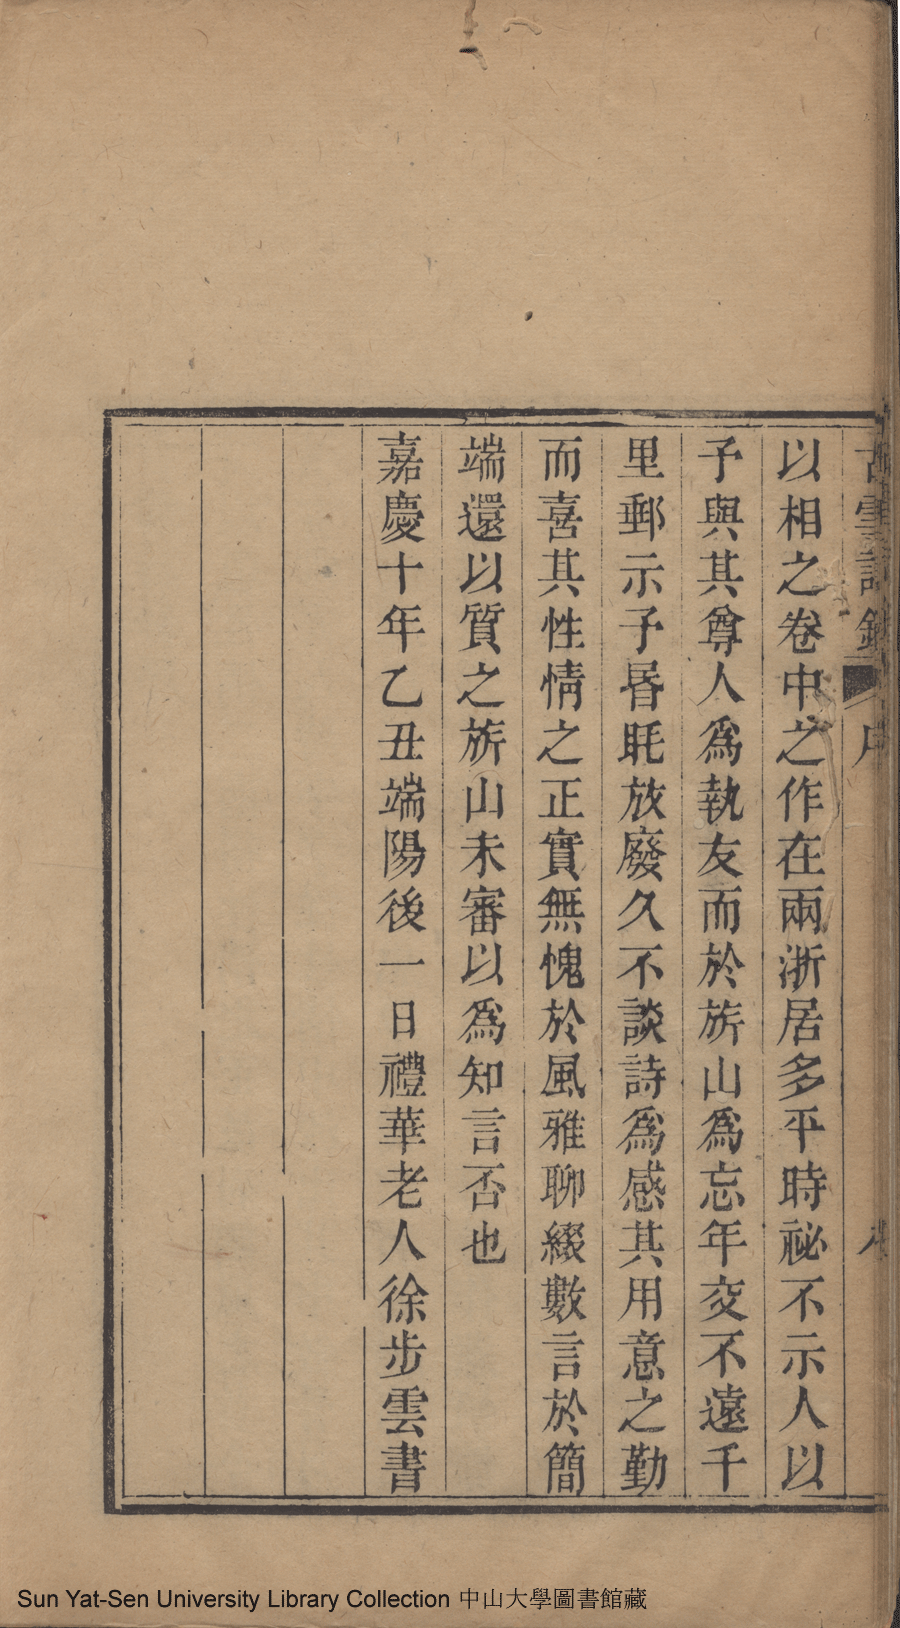 以相之卷中之作在兩浙居多平時祕不示人以
予與其尊人爲執友而於旂山爲忘年交不遠千
里郵示予昬眊放廢久不談詩爲感其用意之勤
而喜其性情之正實無愧於風雅聊綴數言於簡
端還以質之旂山未審以爲知言否也
嘉慶十年乙丑端陽後一日禮華老人徐步雲書
Sun Yat-Sen University Library Collection 中山大學圖書館藏